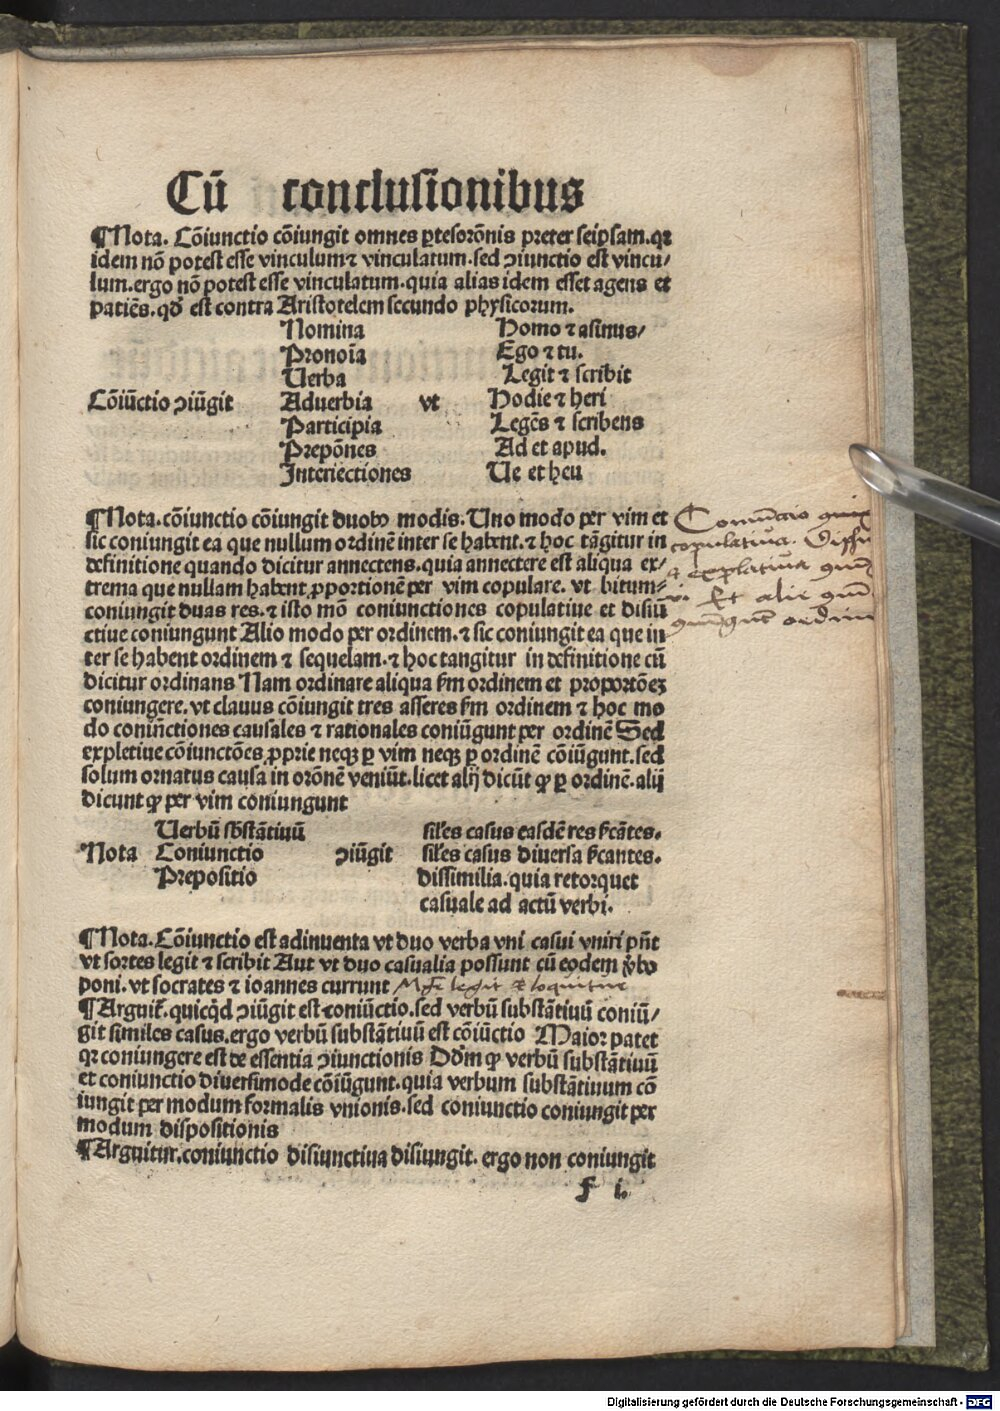 Cū conclusionibus
¶Nota. Cōiunctio cōiungit omnes ꝑtesorōnis preter seipsam. qꝛ
idem nō potest esse vinculum ⁊ vinculatum. sed ꝯiunctio est vincu/
lum. ergo nō potest esse vinculatum. quia alias idem esset agens et
patiēs. qd̄ est contra Aristotelem secundo phẏsicorum.
Nomina Homo ⁊ asinus/
Pronoīa Ego ⁊ tu.
Uerba Legit ⁊ scribit
Cōiūctio ꝯiūgit Aduerbia vt Hodie ⁊ heri
Participia Legēs ⁊ scribens
Prepōnes Ad et apud.
Interiectiones Ue et heu
¶Nota. cōiunctio cōiungit duobꝰ modis. Uno modo per vim et
sic coniungit ea que nullum ordinē inter se habent. ⁊ hoc tāgitur in
definitione quando dicitur annectens. quia annectere est aliqua ex/
trema que nullam habent ꝓportionē per vim copulare. vt bitum⸗
coniungit duas res. ⁊ isto mō coniunctiones copulatiue et disiū
ctiue coniungunt Alio modo per ordinem. ⁊ sic coniungit ea que in
ter se habent ordinem ⁊ sequelam. ⁊ hoc tangitur in definitione cū
dicitur ordinans Nam ordinare aliqua ẜm ordinem et proportōeꝫ
coniungere. vt clauus cōiungit tres asseres ẜm ordinem ⁊ hoc mo
do coniūctiones causales ⁊ rationales coniūgunt per ordinē Sed
expletiue cōiunctōes ꝓprie neqꝫ ꝑ vim neqꝫ ꝑ ordinē cōiūgunt. sed
solum ornatus causa in orōnē veniūt. licet alij dicūt ꝙ ꝑ ordinē. alij
dicunt ꝙ per vim coniungunt
Uerbū sbstātiuū siles casus easdē res ẜcātes.
Nota Coniunctio ꝯiūgit siles casus diuersa ẜcantes.
Prepositio dissimilia. quia retorquet
casuale ad actū verbi.
¶Nota. Cōiunctio est adinuenta vt duo verba vni casui vniri pn̄t
vt sortes legit ⁊ scribit Aut vt duo casualia possunt cū eodem ꝟbo
poni. vt socrates ⁊ ioannes currunt legit et loquitur
¶Arguit᷑. quicq̇d ꝯiūgit est coniūctio. sed verbū substātiuū coniū/
git similes casus. ergo verbū substātiuū est cōiūctio Maior patet
qꝛ coniungere est de essentia ꝯiunctionis Dd̄m ꝙ verbū substātiuū
et coniunctio diuersimode cōiūgunt. quia verbum substātiuum cō
iungit per modum formalis vnionis. sed coniunctio coniungit per
modum dispositionis
¶Arguitur. coniunctio disiunctiua disiungit. ergo non coniungit
f i.
copulatiua.
Et alie
Digitalisierung gefördert durch die Deutsche Forschungsgemeinschaft - DFG